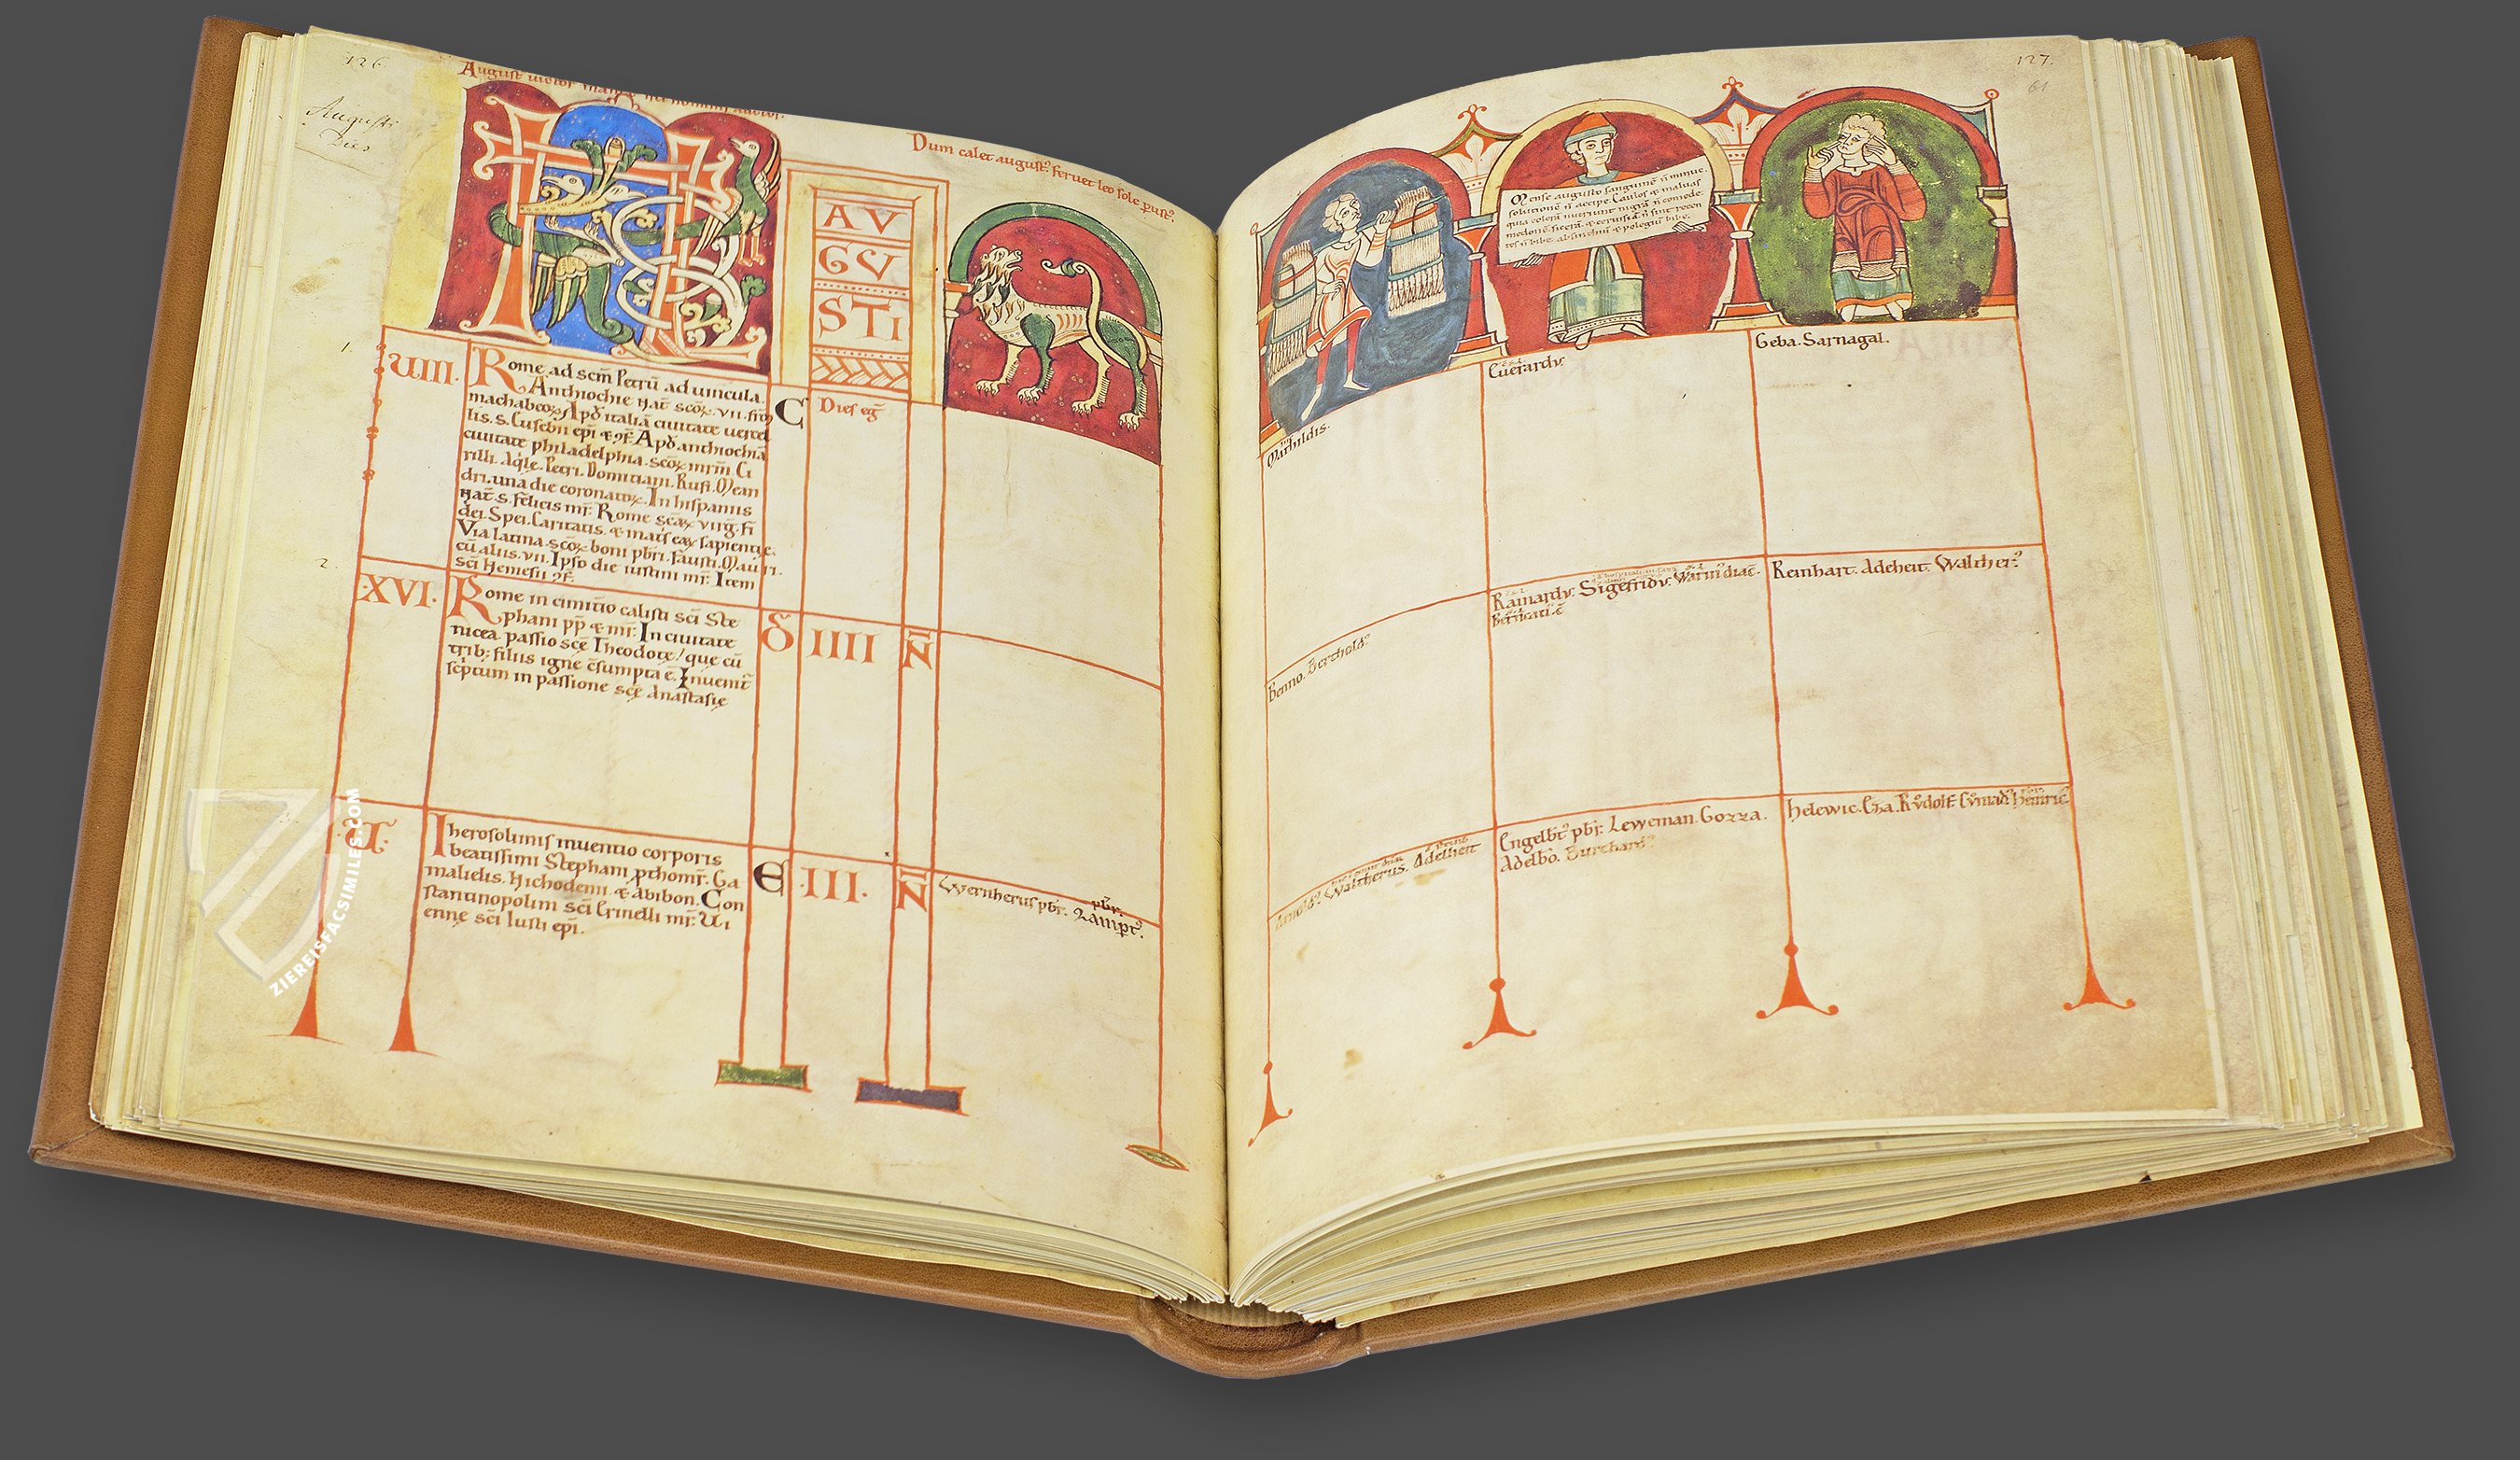 126.
Augusti
Dies
August
Dum calet august᷒ feruet leo sole
AV
GV
STI
1.
UIII.
Rome. ad scm̄ Petrū ad uincula.
Anthiochie nat̄ scoꝝ. vii. frm̄
machabeoꝝ. Apđ italiā ciuitate uercel
lis. s. Eusebii ep̄i ⁊ ꝯf̄. Apđ anthiochiā
ciuitate philadelphia. scoꝝ mr̄m. Ci
rilli. Aqle. Petri. Domitiani. Rufi. Mean
dri. una die coronatoꝝ. In hispaniis
nat̄. s. felicis mr̄. Rome scāꝝ virḡ. fi
dei. Spei. Caritatis. ⁊ mat̄s eaꝝ sapientię.
Via latina. scoꝝ boni pbr̄i. fausti. Mauri.
cū aliis. vii. Ipso die iustini mr̄. Item
sc̄i Hemesii ꝯf̄.
C
Dies eḡ
2.
XVI.
Rome in cimit̄io calisti sc̄i Ste
phani pp̄ ⁊ mr̄. In ciuitate
nicea. passio scę Theodotę! que cū
trib; filiis igne c̄sumpta ē. Inuenit̄
sc̄ptum in passione scę Anastasię
D
IIII
N̄
Iherosolimis inuentio corporis
beatissimi Stephani ꝓthomr̄. Ga
malielis. Nichodemi. ⁊ Abibon. Con
stantinopolim sc̄i Crinelli mr̄. Vi
ennę sc̄i Iusti ep̄i.
E
.III.
N̄
Wernherus pbr̄.
pbr̄.
127.
61
Mense augusto sanguinē n̄ minue.
solutionē n̄ accipe. Caulos ⁊ maluas
qua colerā nutriunt nigrā n̄ comede.
medonē. sicerā. ⁊ ceruisiā n̄ sint recen
tes n̄ bibe. absinthiū ⁊ polegiū bibe.
Mathildis.
Euerardꝰ.
Geba. Sarnagal.
Benno. Bertholdꝰ
Rainardꝰ. Sigefridꝰ.
Reinhart. Adeheit. Waltherꝰ
Waltherus. Adelheit
Engelbtꝰ pbr̄. Leweman. Gozza.
Adelbo. Burchardꝰ
Helewic. Rvdolf.
ZIEREISFACSIMILES.COM